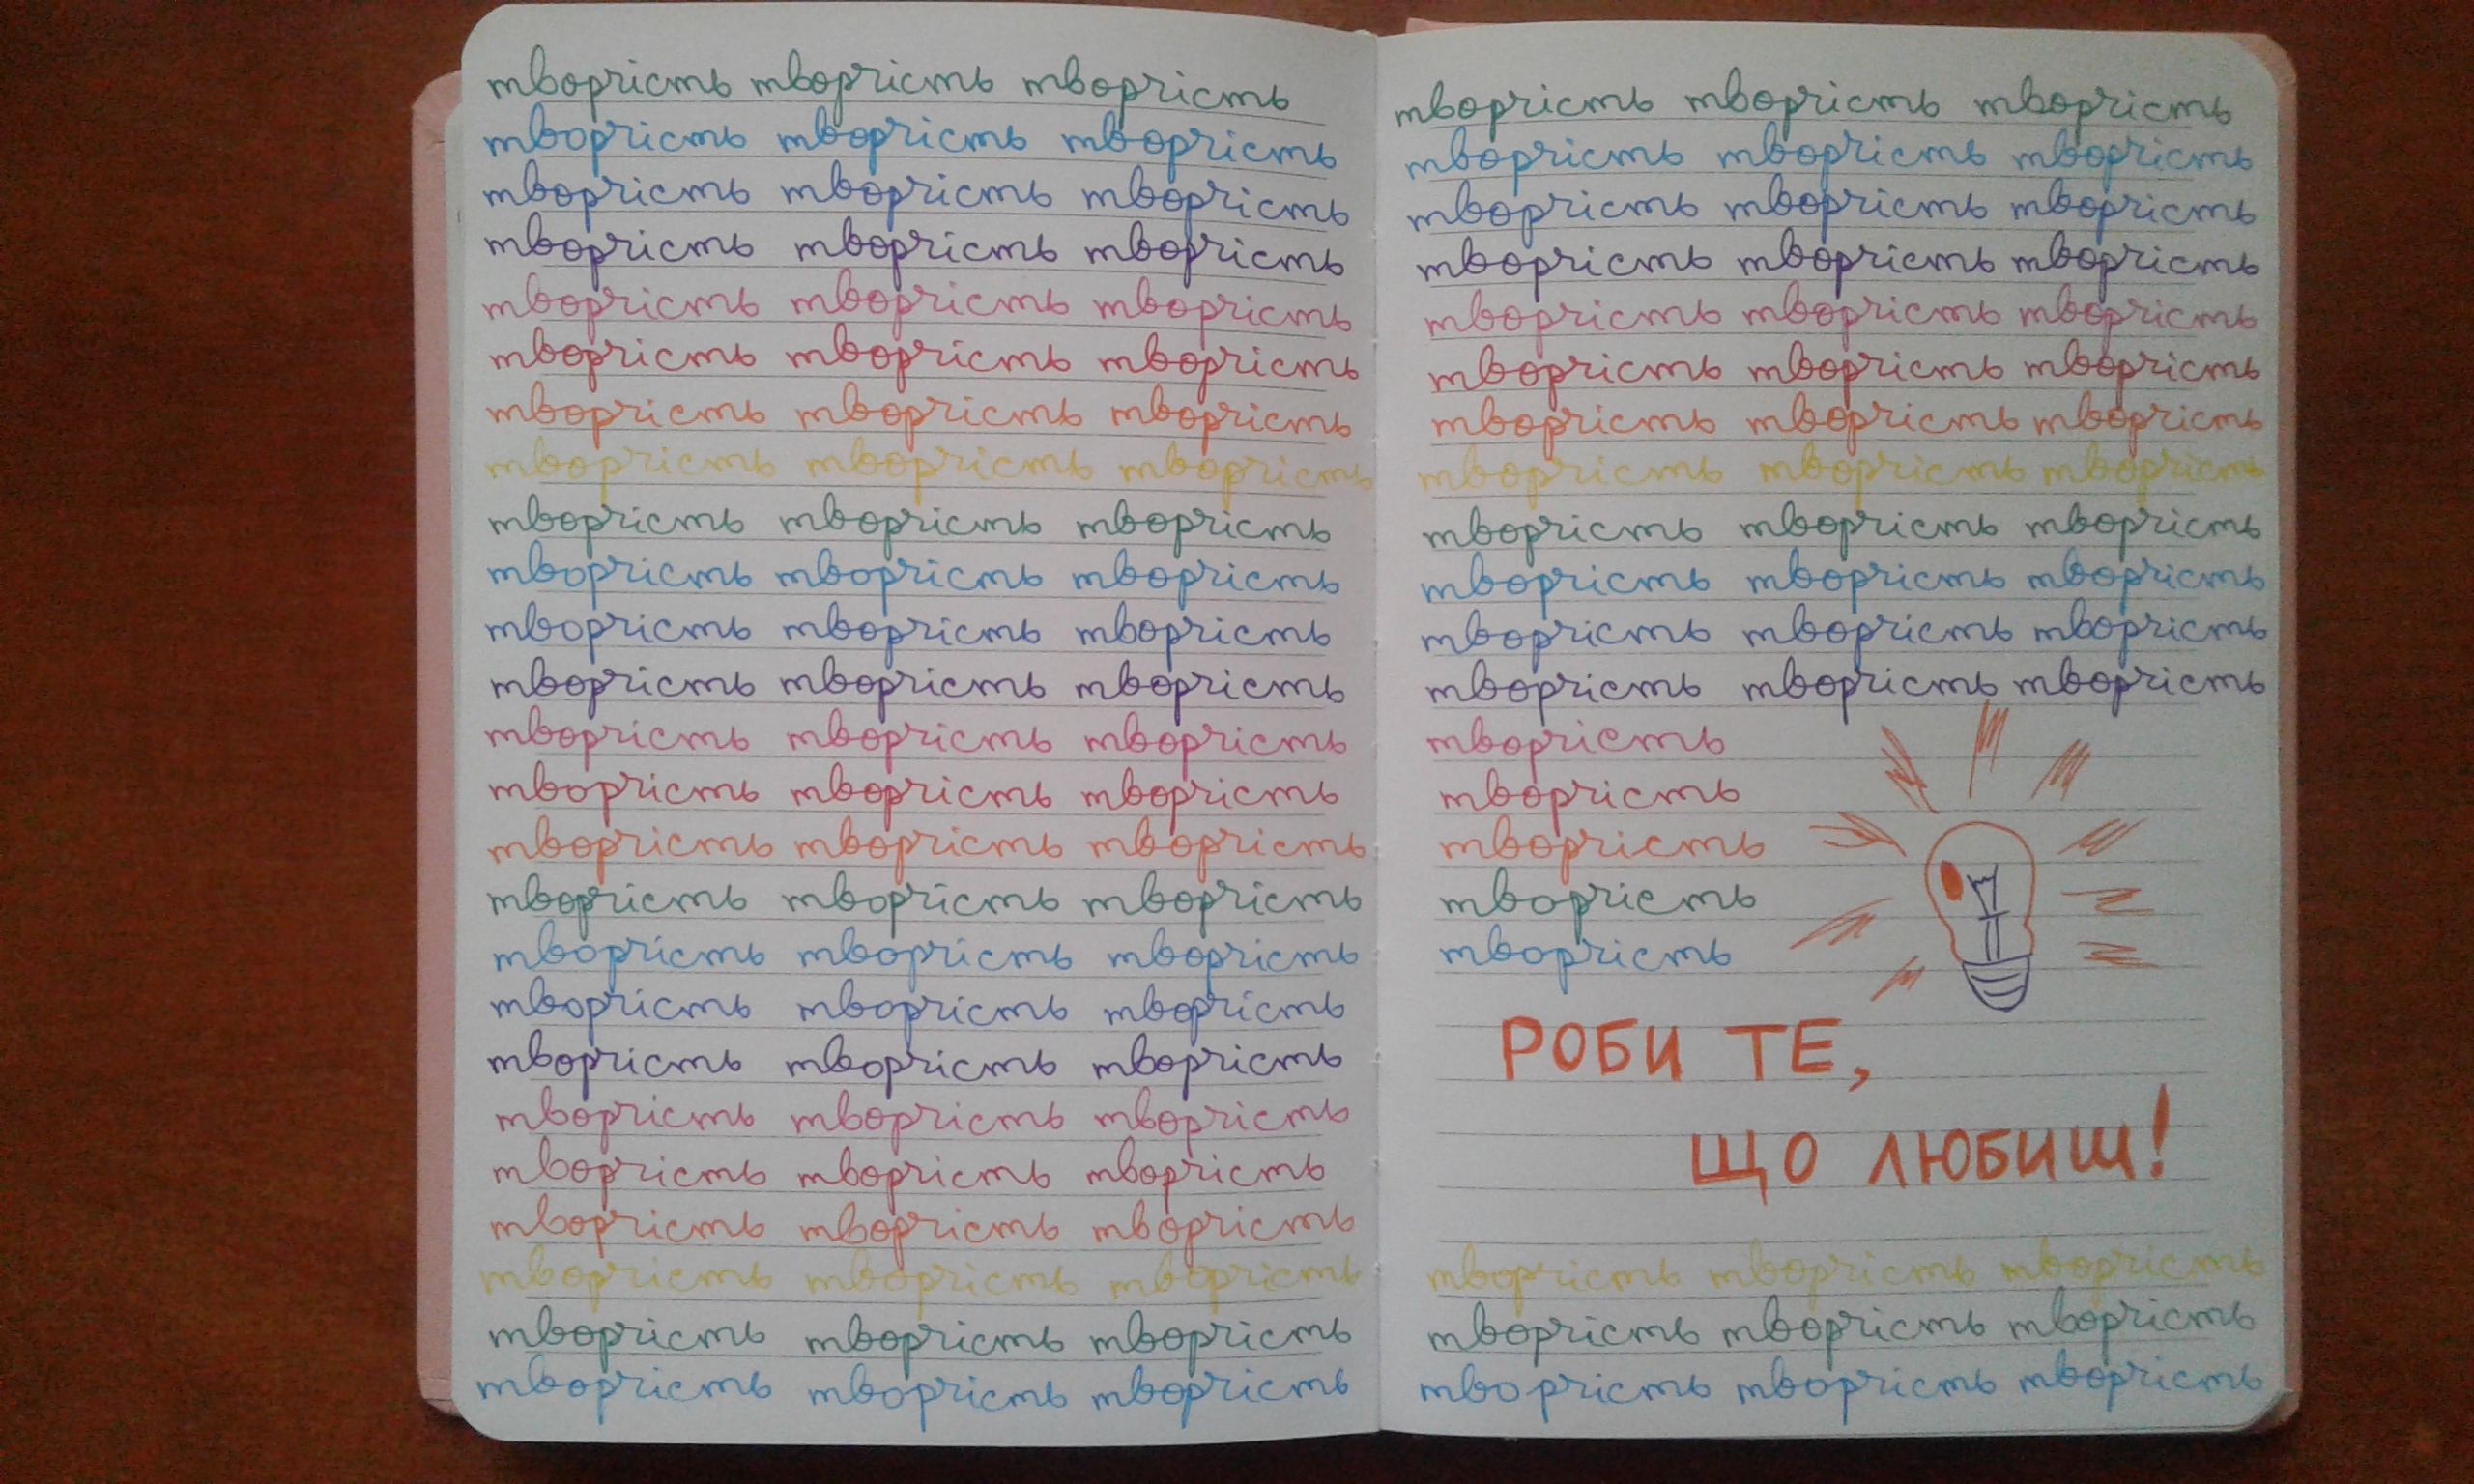 творчість творчість творчість
творчість творчість творчість
творчість творчість творчість
творчість творчість творчість
творчість творчість творчість
творчість творчість творчість
творчість творчість творчість
творчість творчість творчість
творчість творчість творчість
творчість творчість творчість
творчість творчість творчість
творчість творчість творчість
творчість творчість творчість
творчість творчість творчість
творчість творчість творчість
творчість творчість творчість
творчість творчість творчість
творчість творчість творчість
творчість творчість творчість
творчість творчість творчість
творчість творчість творчість
творчість творчість творчість
творчість творчість творчість
творчість творчість творчість
творчість творчість творчість
творчість творчість творчість
творчість творчість творчість
творчість творчість творчість
творчість творчість творчість
творчість творчість творчість
творчість творчість творчість
творчість творчість творчість
творчість творчість творчість
творчість творчість творчість
творчість творчість творчість
творчість творчість творчість
творчість творчість творчість
творчість
творчість
творчість
творчість
творчість
РОБИ ТЕ,
ЩО ЛЮБИШ!
творчість творчість творчість
творчість творчість творчість
творчість творчість творчість